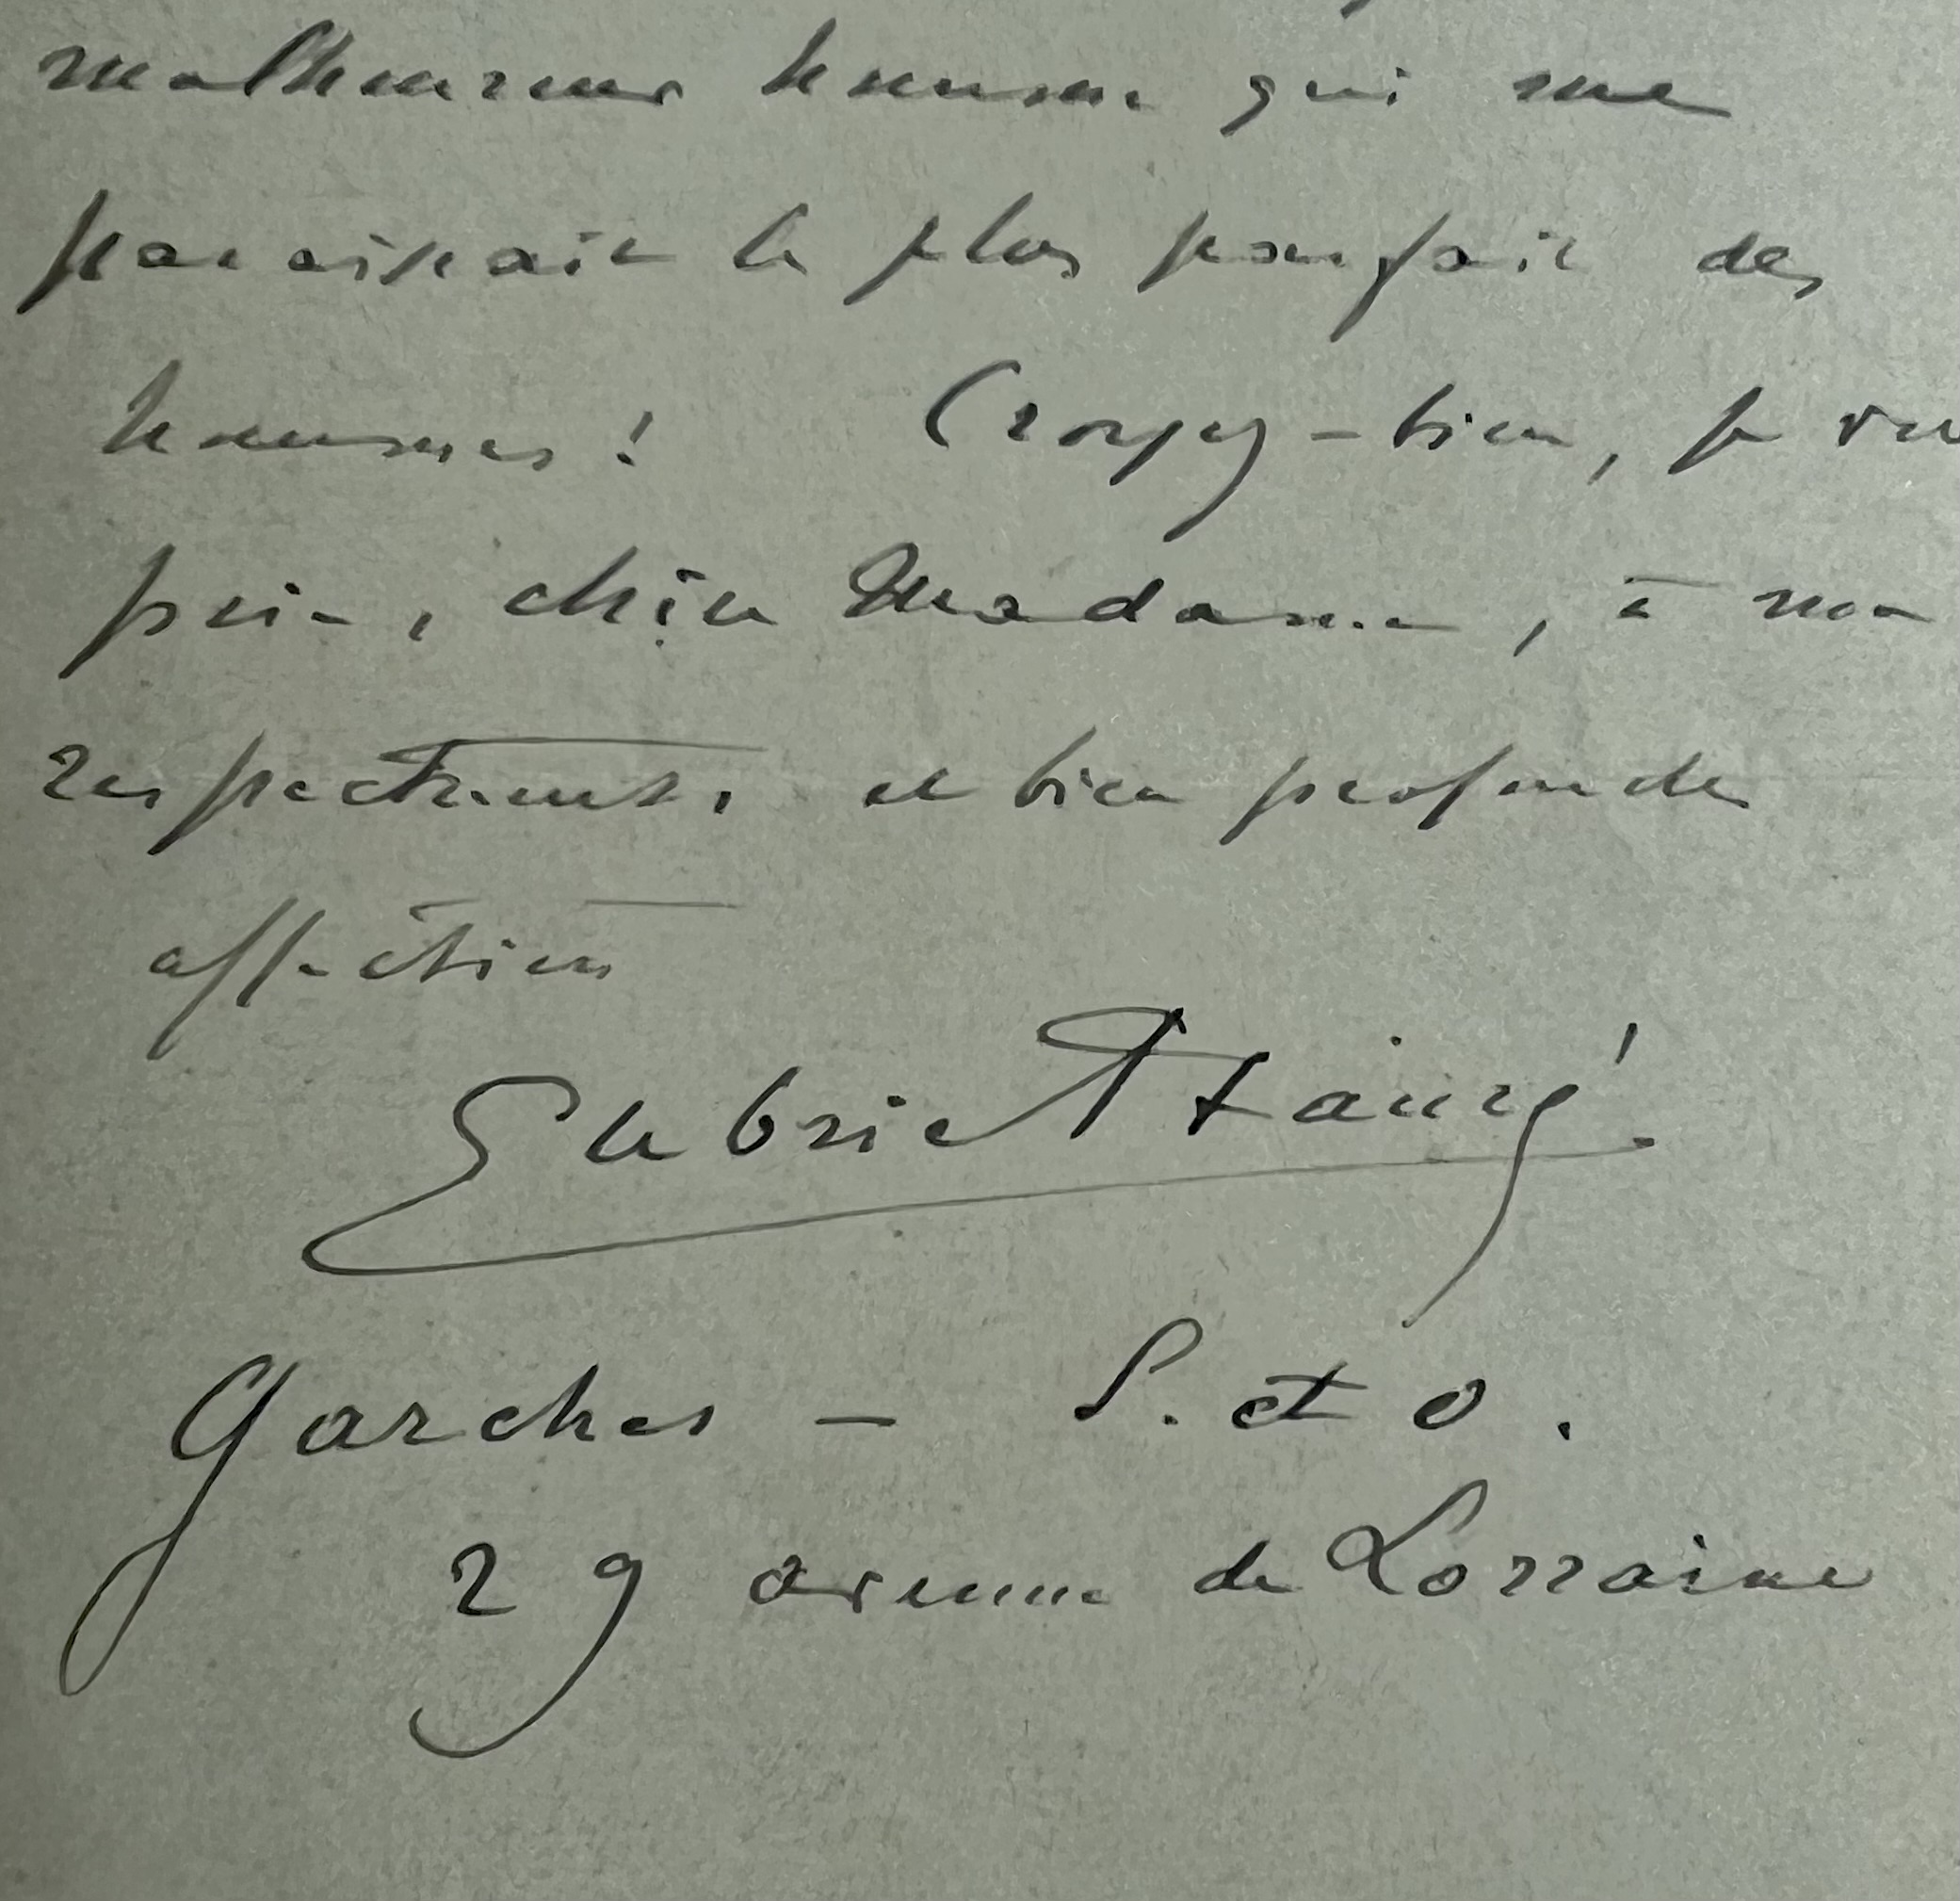 malheureux homme qui me
paraissait le plus parfait des
hommes ! Croyez-bien, je vous
prie, chère Madame, à ma
respectueuse et bien profonde
affection
Gabriel Fauré
Garches - S. et O.
29 avenue de Lorraine